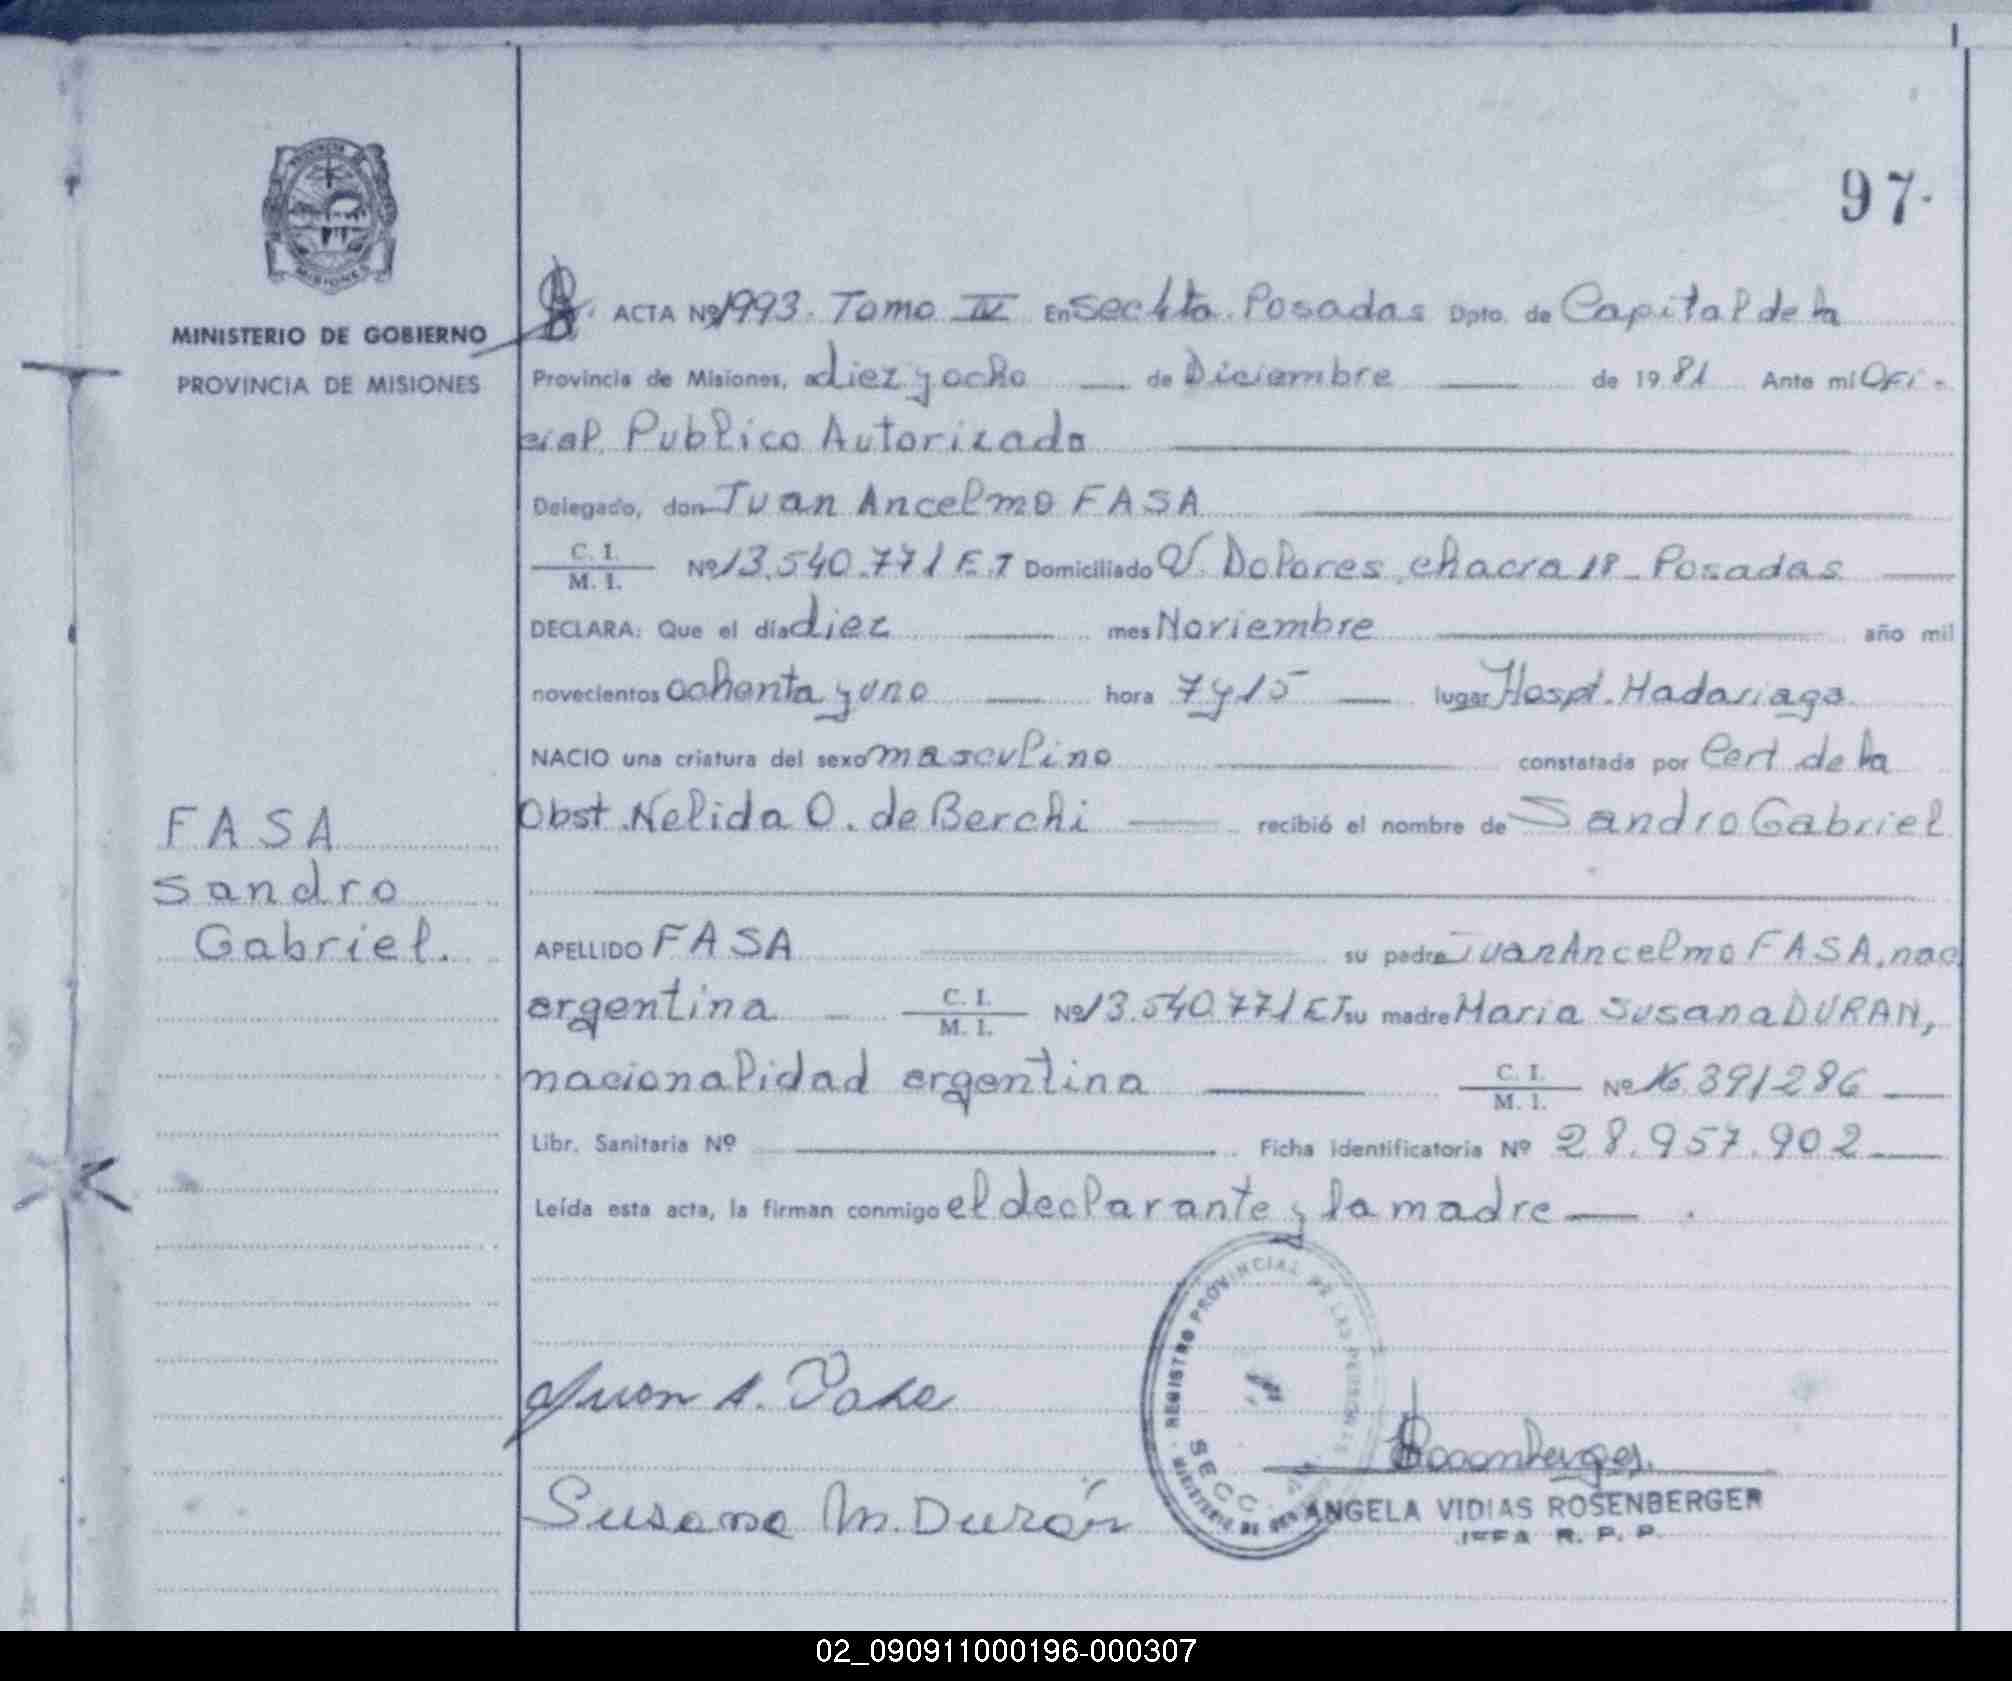 97.
PROVINCIA DE
MISIONES
MINISTERIO DE GOBIERNO
PROVINCIA DE MISIONES
ACTA Nº 1993. Tomo IV En Sec 4ta. Posadas Dpto. de Capital de la
Provincia de Misiones, a diez y ocho de Diciembre de 1981 Ante mi Ofi-
cial Publico Autorizado
Delegado, don Juan Ancelmo FASA
C. I.
M. I. Nº 13.540.771 E.T Domiciliado V. Dolores chacra 18 - Posadas
DECLARA: Que el día diez mes Noviembre año mil
novecientos ochenta y uno hora 7 y 15 lugar Hospt. Madariaga
NACIO una criatura del sexo masculino constatada por Cert de la
Obst. Nelida O. de Berchi recibió el nombre de Sandro Gabriel
FASA
Sandro
Gabriel.
APELLIDO FASA su padre Juan Ancelmo FASA, nac
argentina C. I.
M. I. Nº 13.540.771 ET su madre Maria Susana DURAN,
nacionalidad argentina C. I.
M. I. Nº 16.391286
Libr. Sanitaria Nº Ficha Identificatoria Nº 28.957.902
Leída esta acta, la firman conmigo el declarante y la madre
REGISTRO PROVINCIAL DE LAS PERSONAS
SECC.
MINISTERIO DE
Juan A.
Susana M. Durán
Rosenberger
ANGELA VIDIAS ROSENBERGER
JEFA R. P. P.
02_090911000196-000307